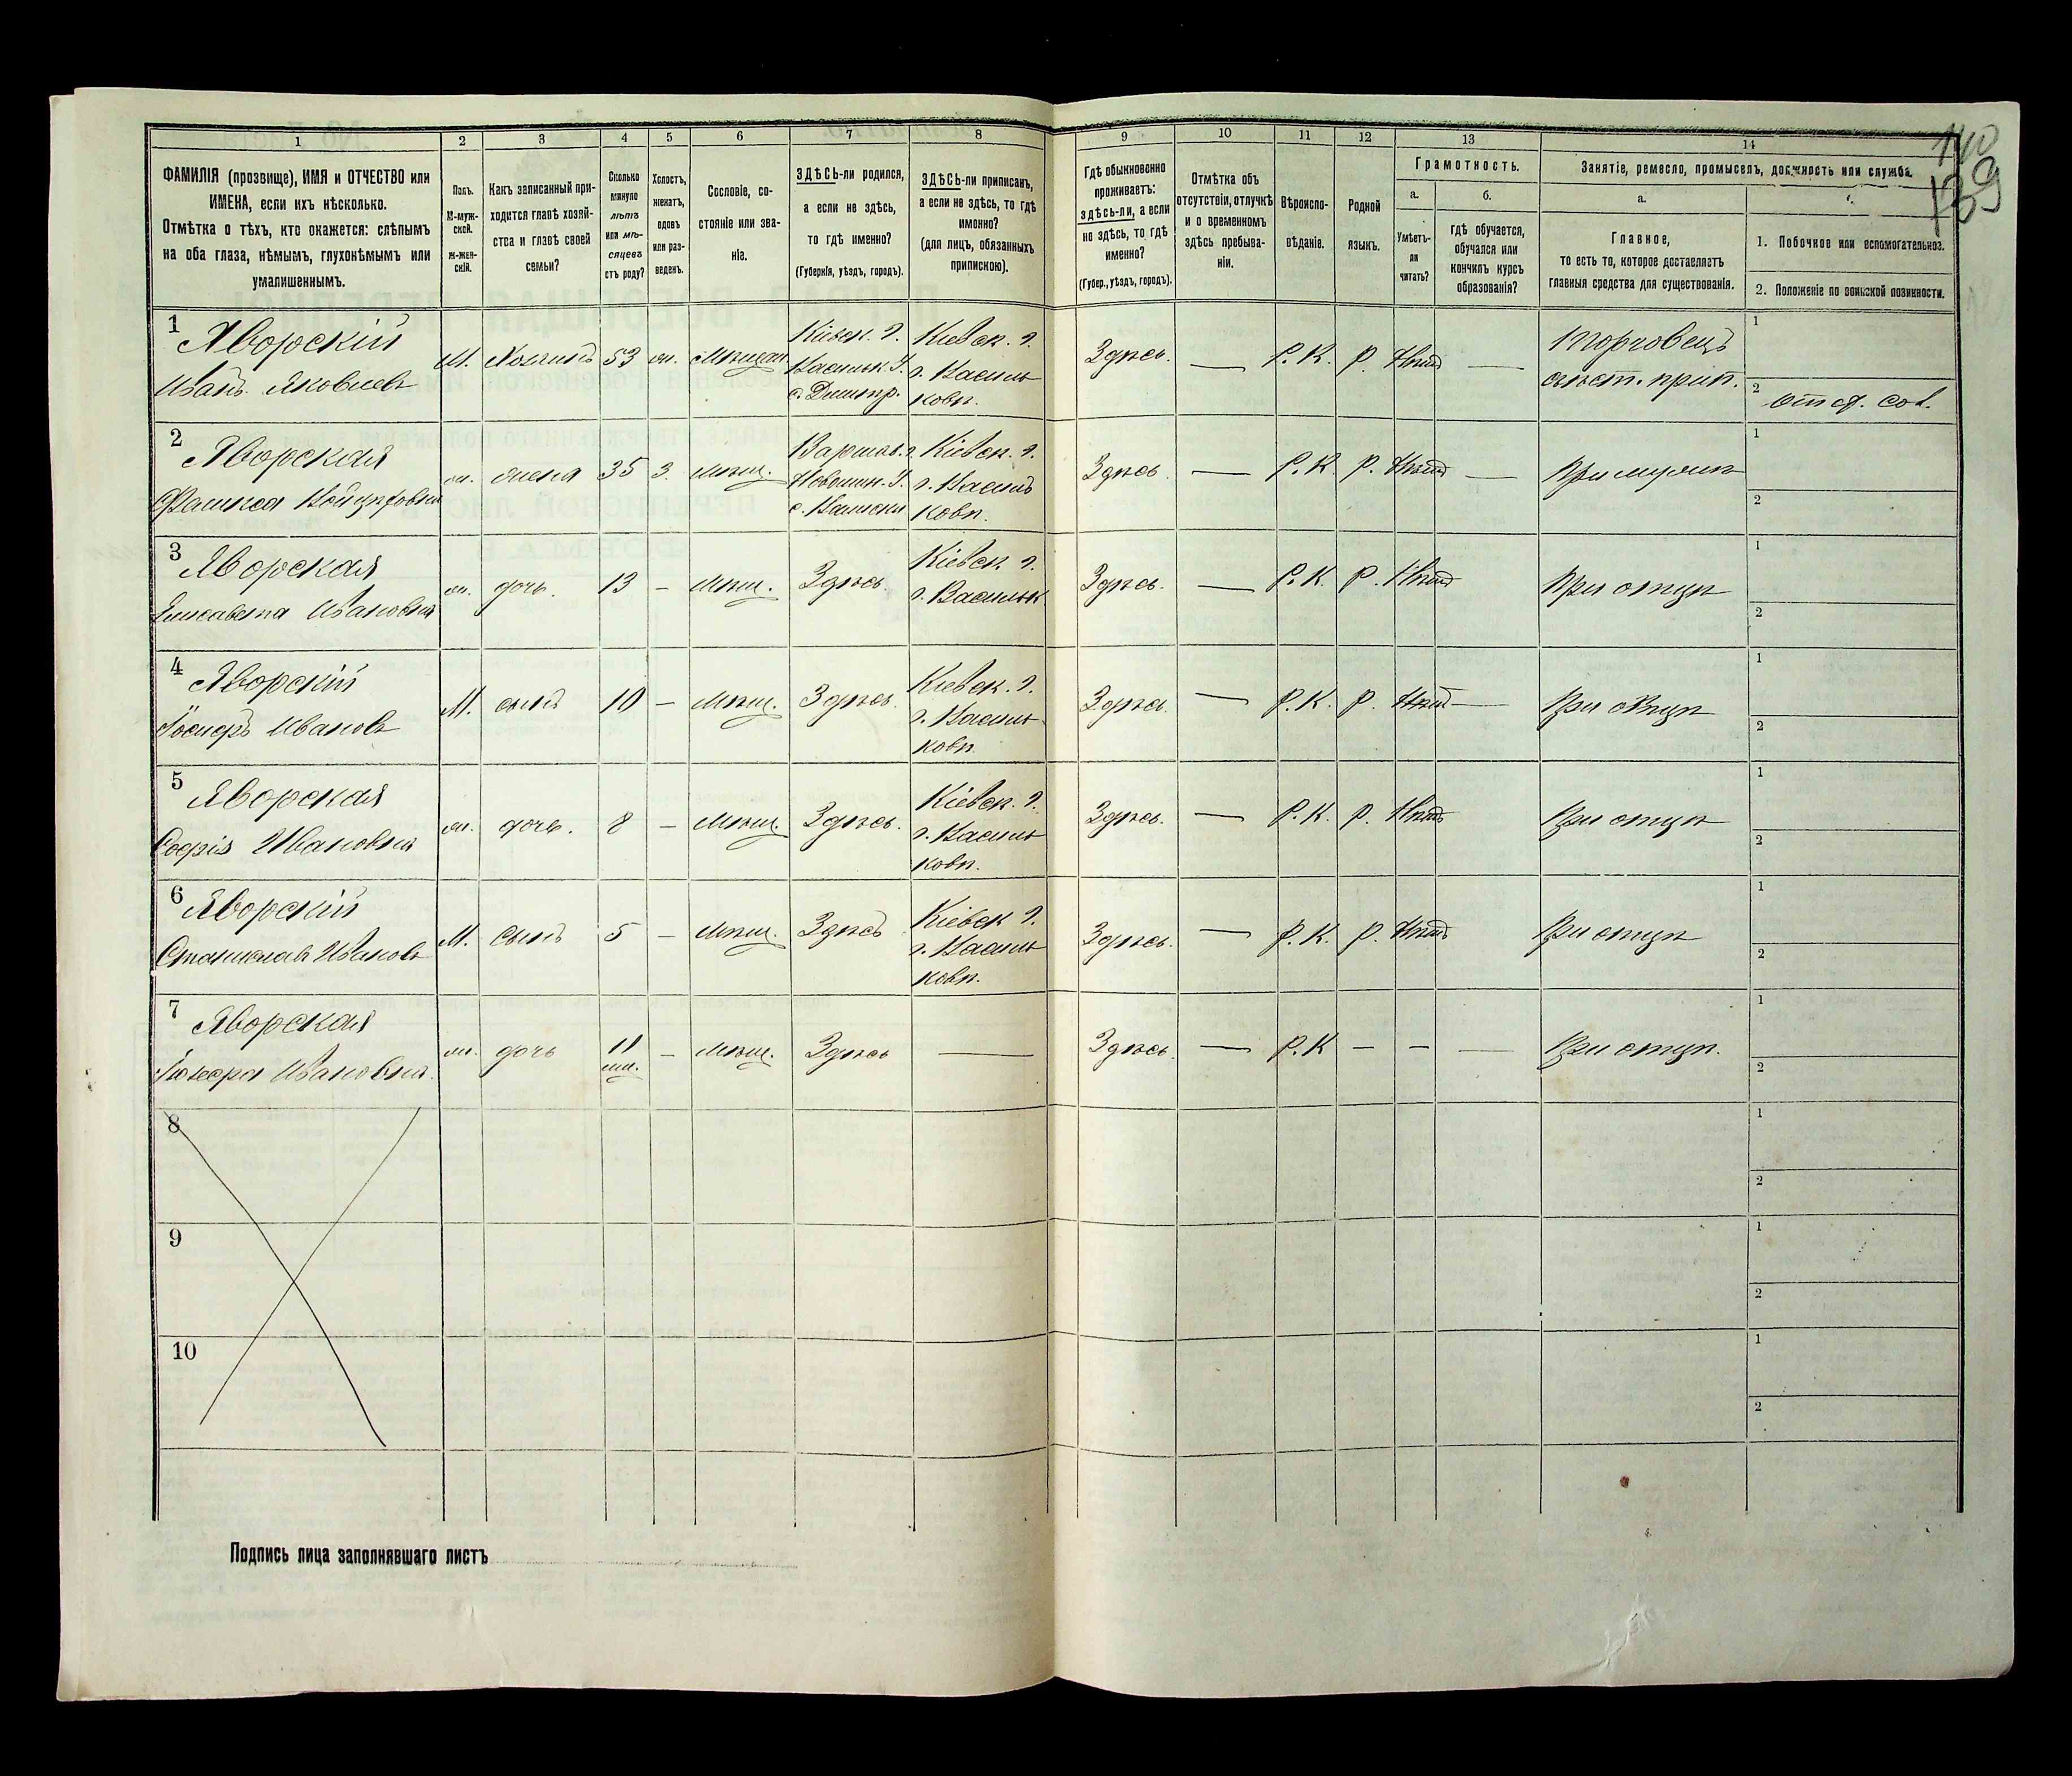 140
139
1 2 3 4 5 6 7 8 9 10 11 12 13 14
ФАМИЛІЯ (прозвище), ИМЯ и ОТЧЕСТВО или
ИМЕНА, если ихъ нѣсколько.
Отмѣтка о тѣхъ, кто окажется: слѣпымъ
на оба глаза, нѣмымъ, глухонѣмымъ или
умалишеннымъ.
Полъ.
М-муж-
ской.
Ж-жен-
скій.
Какъ записанный при-
ходится главѣ хозяй-
ства и главѣ своей
семьи?
Сколько
минуло
лѣтъ
или мѣ-
сяцевъ
отъ роду?
Холостъ,
женатъ,
вдовъ
или раз-
веденъ.
Сословіе, со-
стояніе или зва-
ніе.
ЗДѢСЬ-ли родился,
а если не здѣсь,
то гдѣ именно?
(Губернія, уѣздъ, городъ).
ЗДѢСЬ-ли приписанъ,
а если не здѣсь, то гдѣ
именно?
(для лицъ, обязанныхъ
припискою).
Гдѣ обыкновенно
проживаетъ:
здѣсь-ли, а если
не здѣсь, то гдѣ
именно?
(Губер., уѣздъ, городъ).
Отмѣтка объ
отсутствіи, отлучкѣ
и о временномъ
здѣсь пребыва-
ніи.
Вѣроиспо-
вѣданіе.
Родной
языкъ.
Грамотность.
а.
Умѣетъ-
ли
читать?
б.
гдѣ обучается,
обучался или
кончилъ курсъ
образованія?
Занятіе, ремесло, промыселъ, должность или служба.
а.
Главное,
то есть то, которое доставляетъ
главныя средства для существованія.
1. Побочное или вспомогательное.
2. Положеніе по воинской повинности.
1
Яворскій
Иванъ Яковлевъ
М.
Хозяинъ
53
Мѣщан.
Кіевск. г.
Васильк. У.
с. Дмитр.
Кіевск. г.
г. Василь
ковѣ.
Здѣсь.
—
Р. К.
Р.
Нѣтъ
—
Торговецъ
съѣст. прип.
1
2
2
Яворская
ж.
жена
35
З.
Мѣщ.
Кіевск. г.
г. Василь
ковѣ.
Здѣсь
—
Р. К.
Р.
Нѣтъ
—
При мужѣ
1
2
3
Яворская
Елисавета Ивановна
ж.
дочь.
13
–
Мѣщ.
Здѣсь.
Кіевск. г.
г. Васильк
Здѣсь.
—
Р. К.
Р.
Нѣтъ
При отцѣ
1
2
4
Яворскій
Іосифъ Ивановъ
М.
сынъ
10
–
Мѣщ.
Здѣсь.
Кіевск. г.
г. Василь
ковѣ.
Здѣсь.
—
Р. К.
Р.
Нѣтъ
—
При отцѣ
1
2
5
Яворская
Софія Ивановна
ж.
дочь.
8
–
Мѣщ.
Здѣсь.
Кіевск. г.
г. Василь
ковѣ.
Здѣсь.
—
Р. К.
Р.
Нѣтъ
При отцѣ
1
2
6
Яворскій
Станиславъ Ивановъ
М.
сынъ
5
–
Мѣщ.
Здѣсь
Кіевск г.
г. Василь
ковѣ.
Здѣсь.
—
Р. К.
Р.
Нѣтъ
При отцѣ
1
2
7
Яворская
Ивановна.
ж.
дочь
11
–
Мѣщ.
Здѣсь
—
Здѣсь.
—
Р. К
–
–
—
При отцѣ.
1
2
8
1
2
9
1
2
10
1
2
Подпись лица заполнявшаго листъ